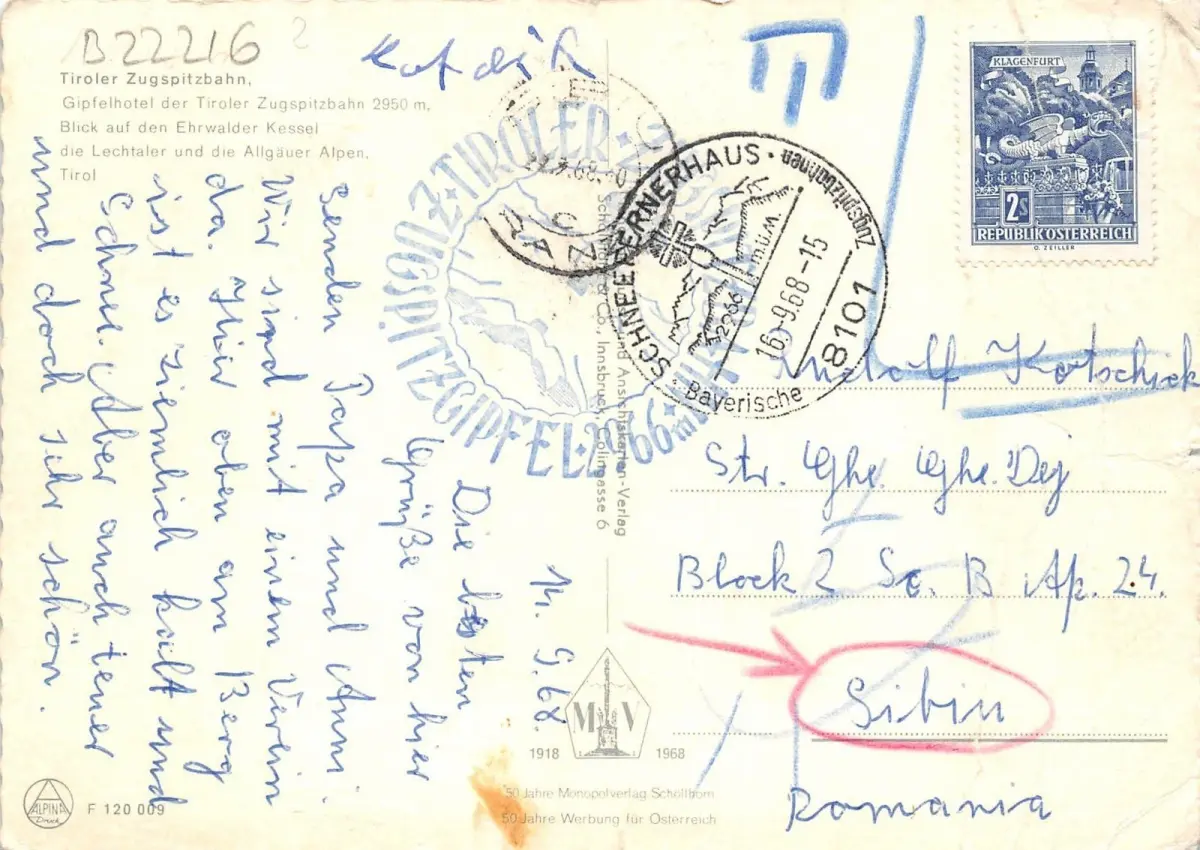 B22216
Tiroler Zugspitzbahn,
Gipfelhotel der Tiroler Zugspitzbahn 2950 m,
Blick auf den Ehrwalder Kessel
die Lechtaler und die Allgäuer Alpen,
Tirol
14. 9. 68.
Die besten
Grüße von hier
senden Papa und Anni.
Wir sind mit einem Verein
da. Hier oben am Berg
ist es ziemlich kalt und
Schnee. Aber auch teuer
und doch sehr schön.
ALPINA
Druck
F 120 009
TIROLER · ZUGSPITZGIPFEL · 2966 m
und Ansichtskarten-Verlag
& Co., Innsbruck, Colingasse 6
M V
1918 1968
50 Jahre Monopolverlag Schöllhorn
50 Jahre Werbung für Österreich
SCHNEEFERNERHAUS · Bayerische Zugspitzbahnen
2966 m.ü.M.
16.-9.68-15
8101
KLAGENFURT
2s
REPUBLIK ÖSTERREICH
O. ZEILLER
Rudolf Kotschick
Str. Ghe. Ghe. Dej
Block 2 Sc. B Ap. 24.
Sibiu
Romania